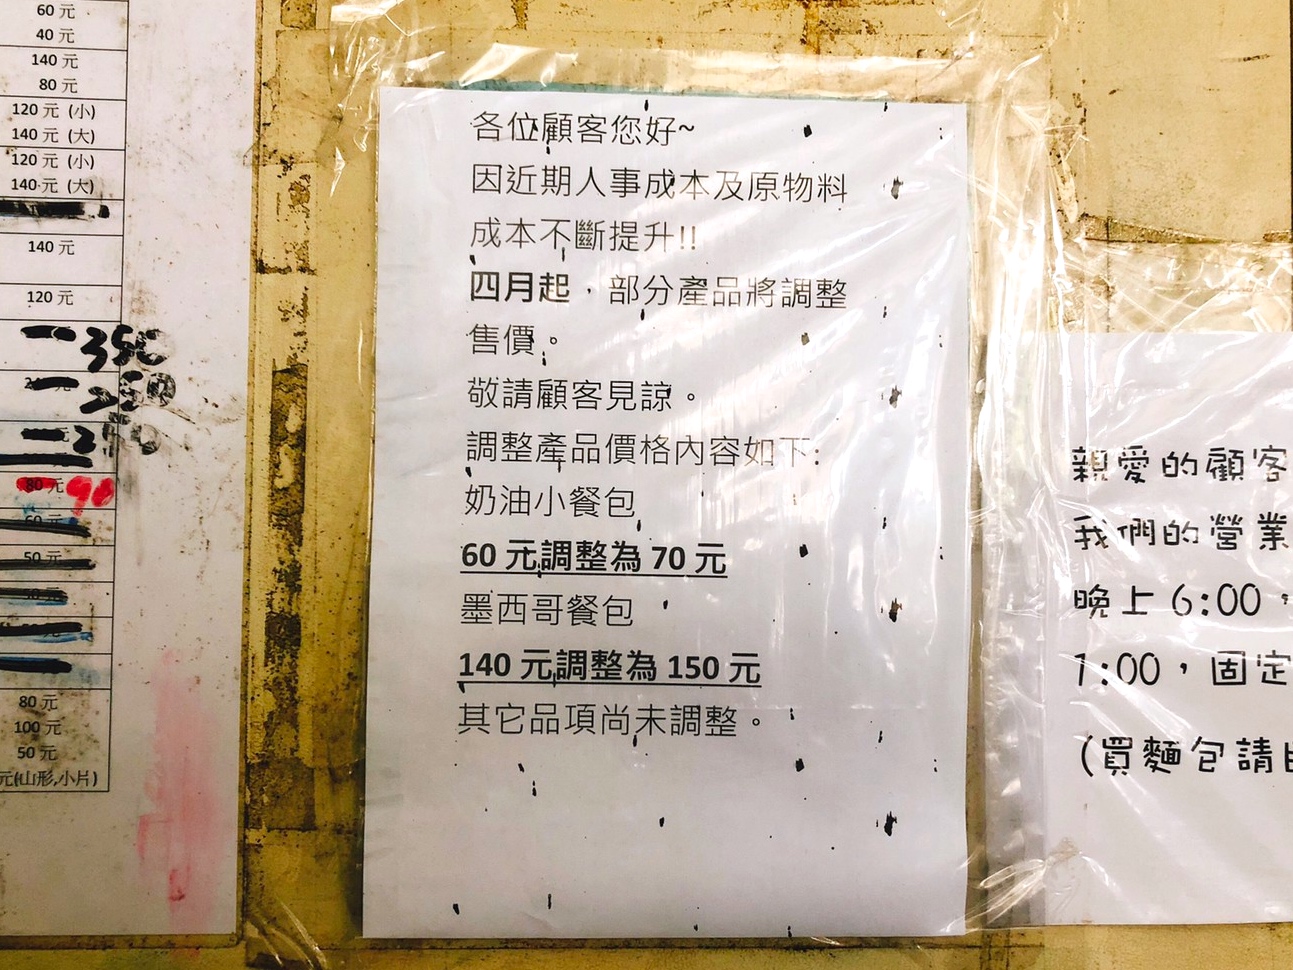 60 元
40 元
140 元
80 元
120 元 (小)
140 元 (大)
120 元 (小)
140 元 (大)
140 元
120 元
350
250
80 元 90
60 元
50 元
80 元
100 元
50 元
元(山形,小片)
各位顧客您好~
因近期人事成本及原物料
成本不斷提升!!
四月起，部分產品將調整
售價。
敬請顧客見諒。
調整產品價格內容如下:
奶油小餐包
60 元調整為 70 元
墨西哥餐包
140 元調整為 150 元
其它品項尚未調整。
親愛的顧客
我們的營業
晚上 6:00，
1:00，固定
(買麵包請